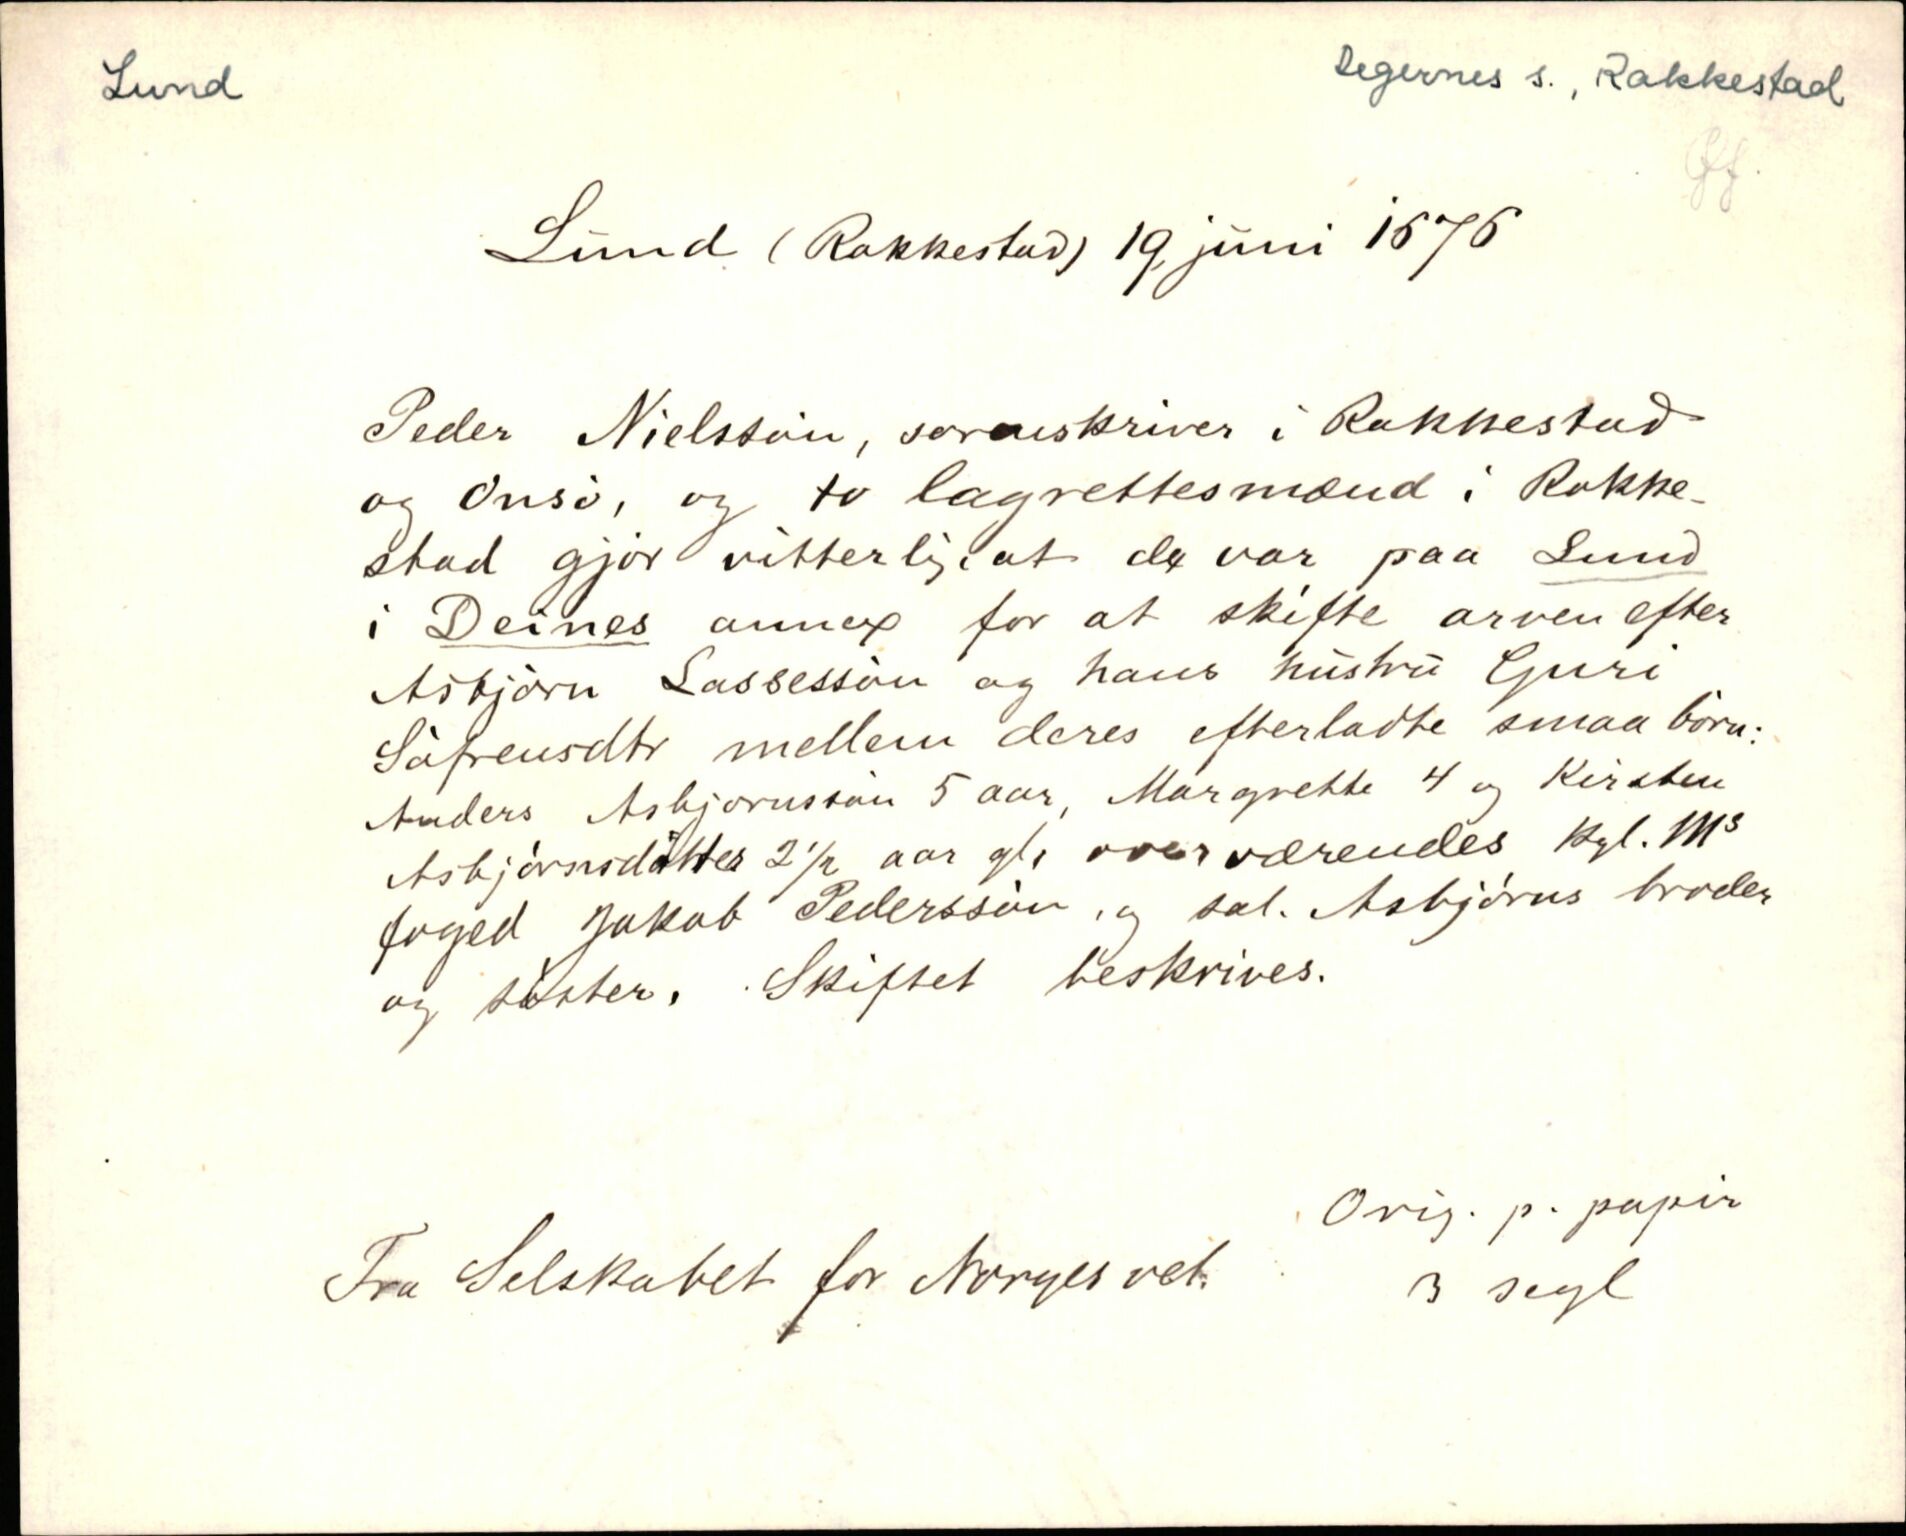 Lund
Degernes s., Rakkestad
Lund (Rakkestad) 19 juni 1676
Peder Nielssøn, sorenskriver i Rakkestad
og Onsø, og to lagrettesmænd i Rakke-
stad gjør vitterlig, at de var paa Lund
i Deines annex for at skifte arven efter
Asbjørn Lassessøn og hans hustru Guri
Søfrensdtr mellem deres efterladte smaa børn:
Anders Asbjørnssøn 5 aar, Margrette 4 og Kirsten
Asbjørnsdøtter 2 1/2 aar gl. overværendes kgl. Ms
foged Jakob Pederssøn, og sal. Asbjørns broder
og søster. Skiftet beskrives.
Orig. p. papir
Fra Selskabet for Norges vel.
3 segl